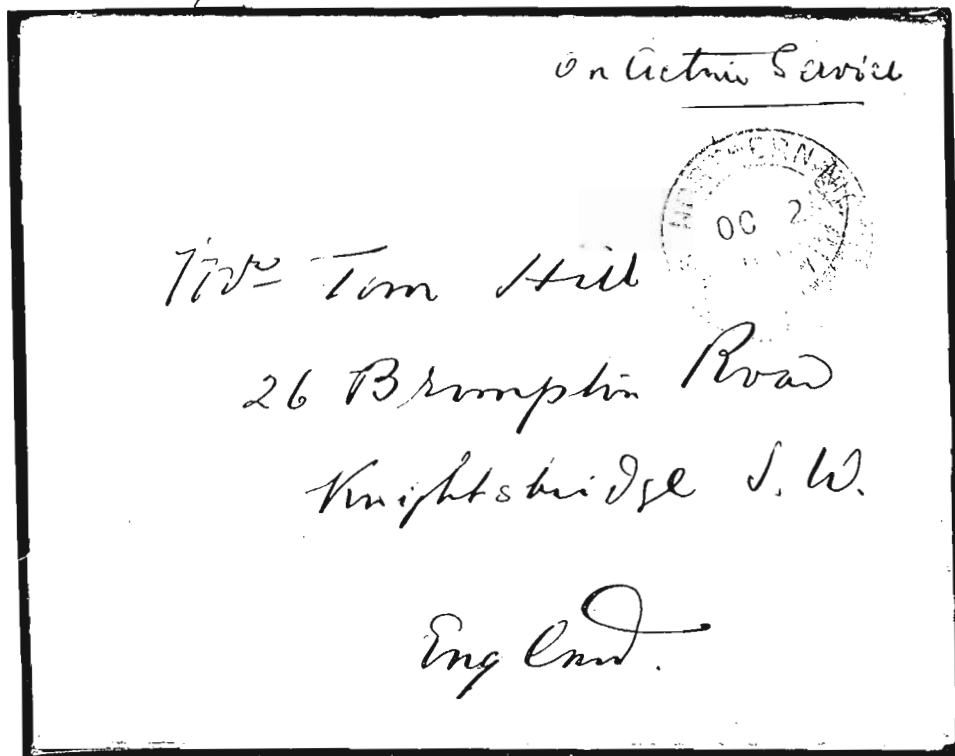 On Active Service
NORTHERN
OC 2
Mr Tom Hill
26 Brompton Road
Knightsbridge S.W.
England.